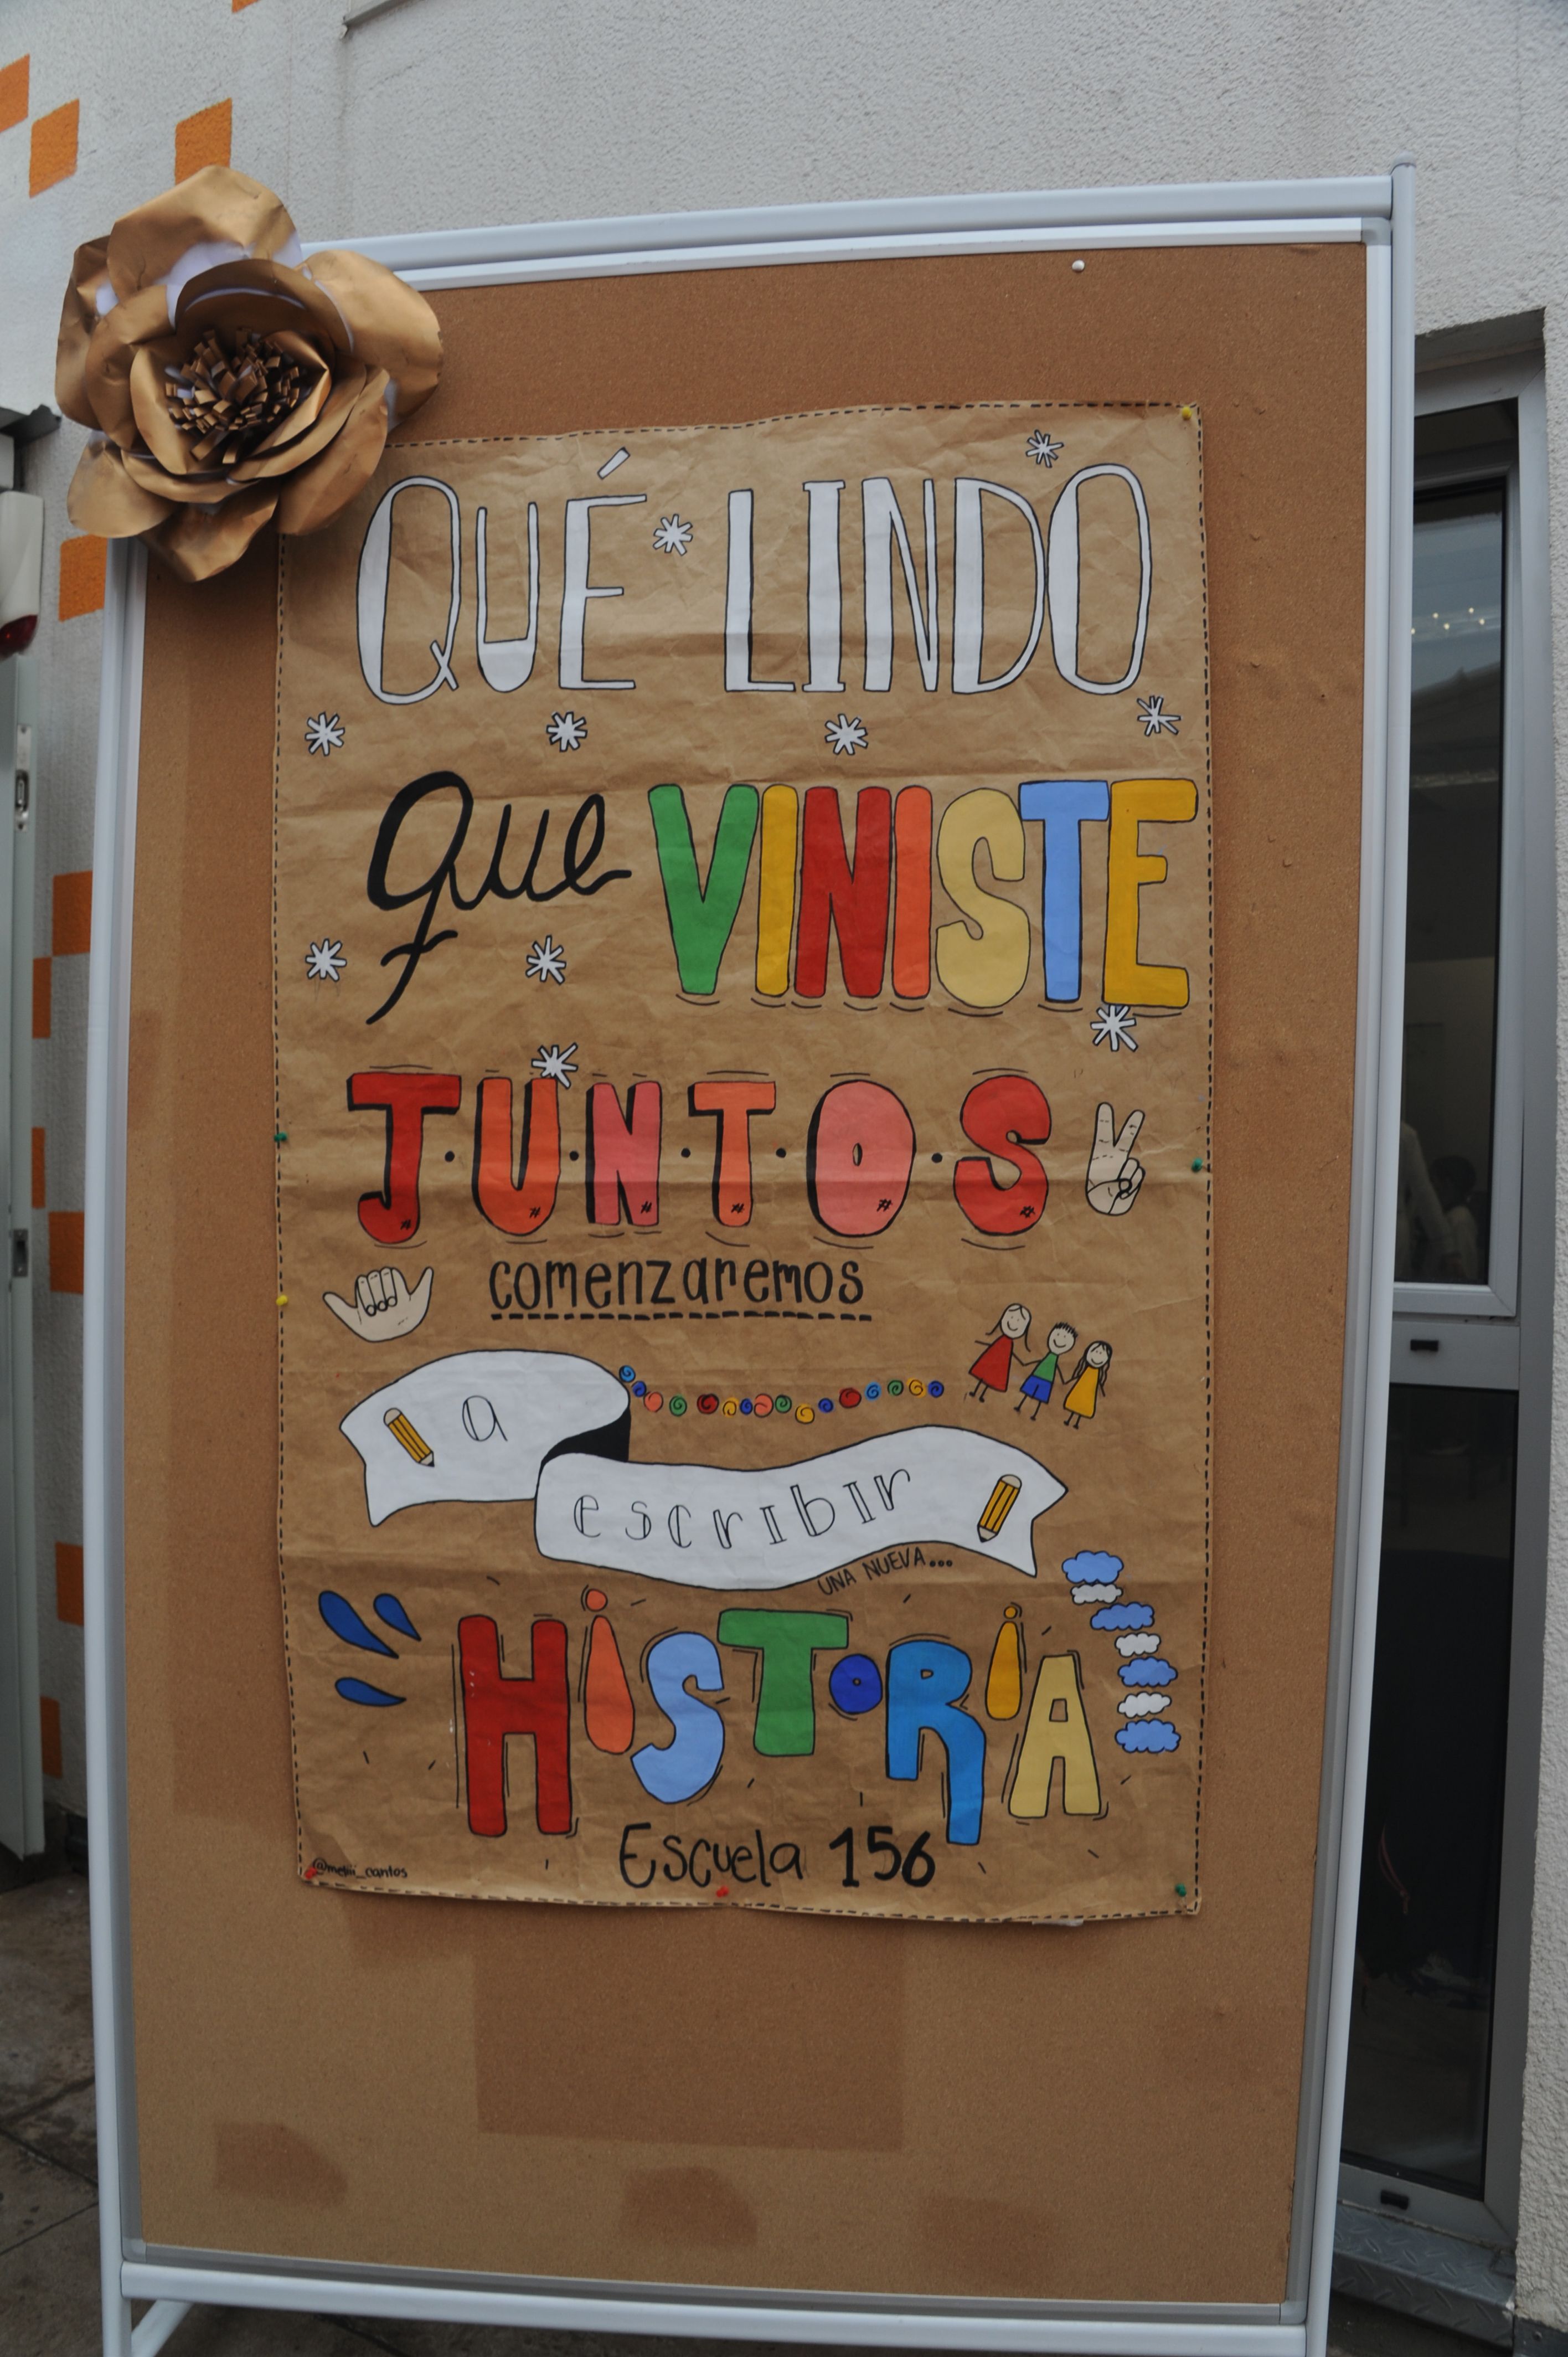 QUÉ LINDO
que VINISTE
J·U·N·T·O·S
comenzaremos
a
escribir
UNA NUEVA...
HiSToRiA
Escuela 156